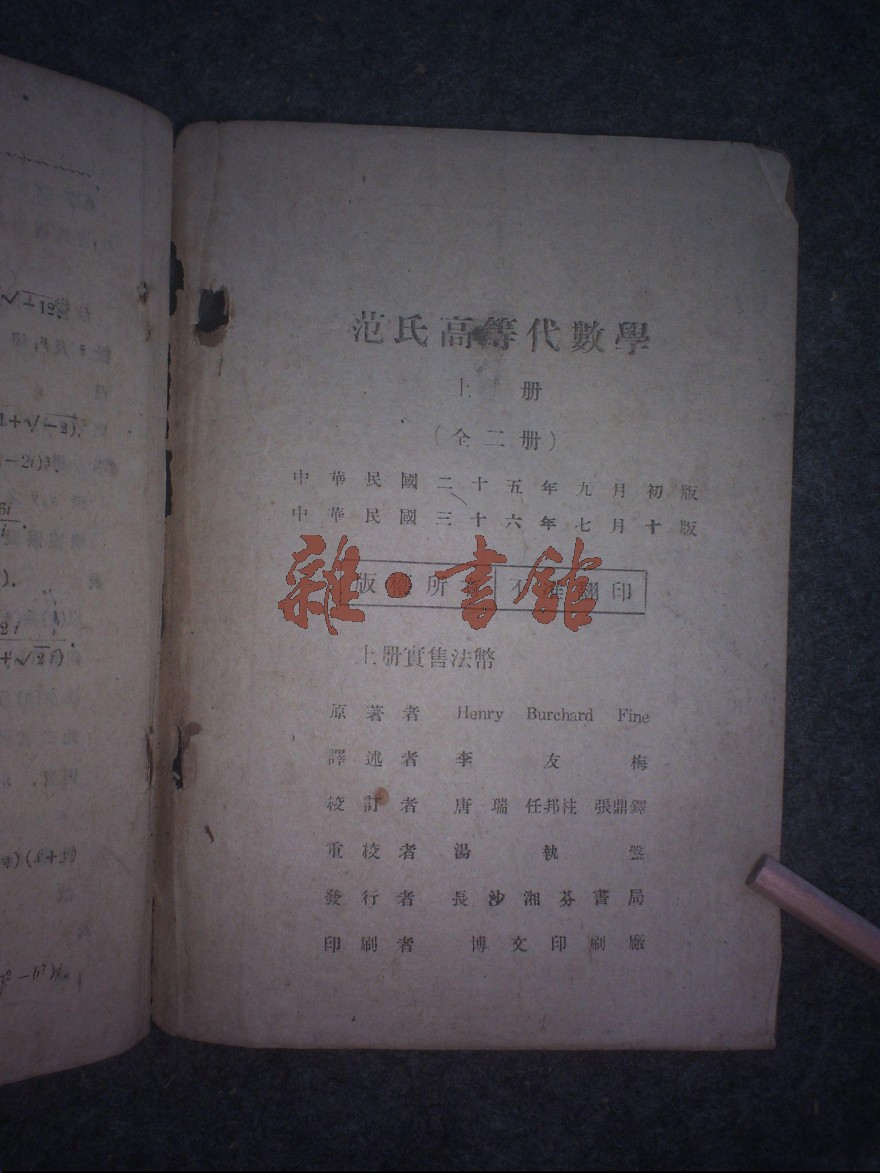 范氏高等代數學
上册
(全二册)
中華民國二十五年九月初版
中華民國三十六年七月十版
版權所 不 翻印
雜·書館
上册實售法幣
原著者 Henry Burchard Fine
譯述者 李友梅
校訂者 唐瑞 任邦柱 張鼎鐸
重校者 湯執盤
發行者 長沙湘芬書局
印刷者 博文印刷廠